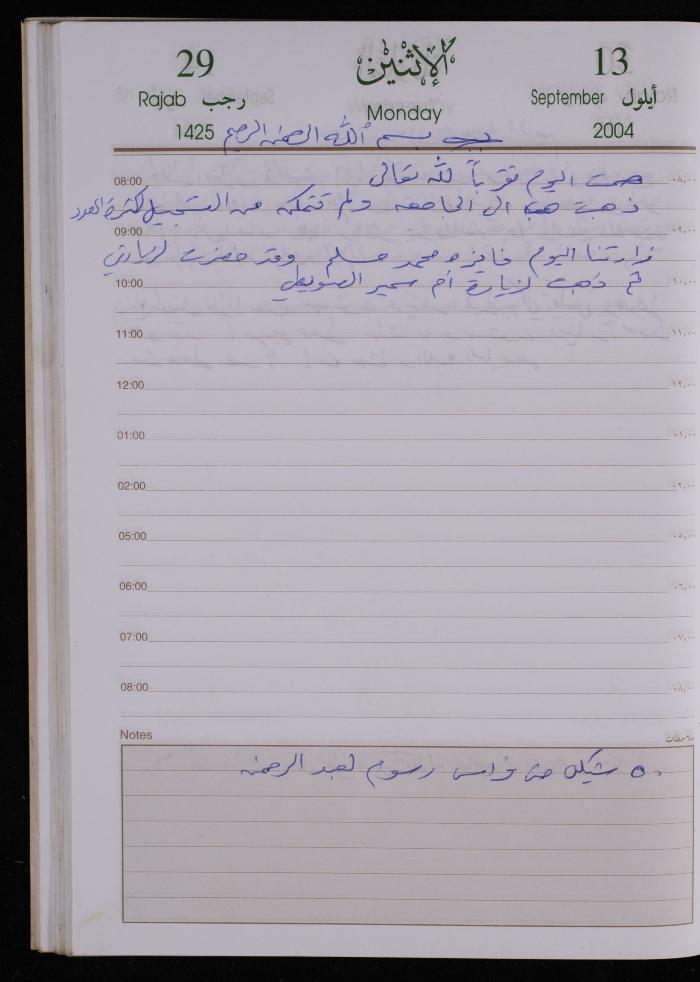 29 الإثنين 13
Rajab رجب Monday September أيلول
1425 2004
بسم الله الرحمن الرحيم
08:00 صمت اليوم تقرباً لله تعالى ٠٨,٠٠
ذهبت هبه الى الجامعه ولم تتمكن من التسجيل لكثرة العدد
09:00 ٠٩,٠٠
زارتنا اليوم فايزه محمد مسلم وقد حضرت لزيارتي
10:00 ثم ذهبت لزيارة أم سمير الصويطي ١٠,٠٠
11:00 ١١,٠٠
12:00 ١٢,٠٠
01:00 ٠١,٠٠
02:00 ٠٢,٠٠
05:00 ٠٥,٠٠
06:00 ٠٦,٠٠
07:00 ٠٧,٠٠
08:00 ٠٨,٠٠
Notes ملاحظات
٥٠ شيكل من فراس رسوم لعبد الرحمن